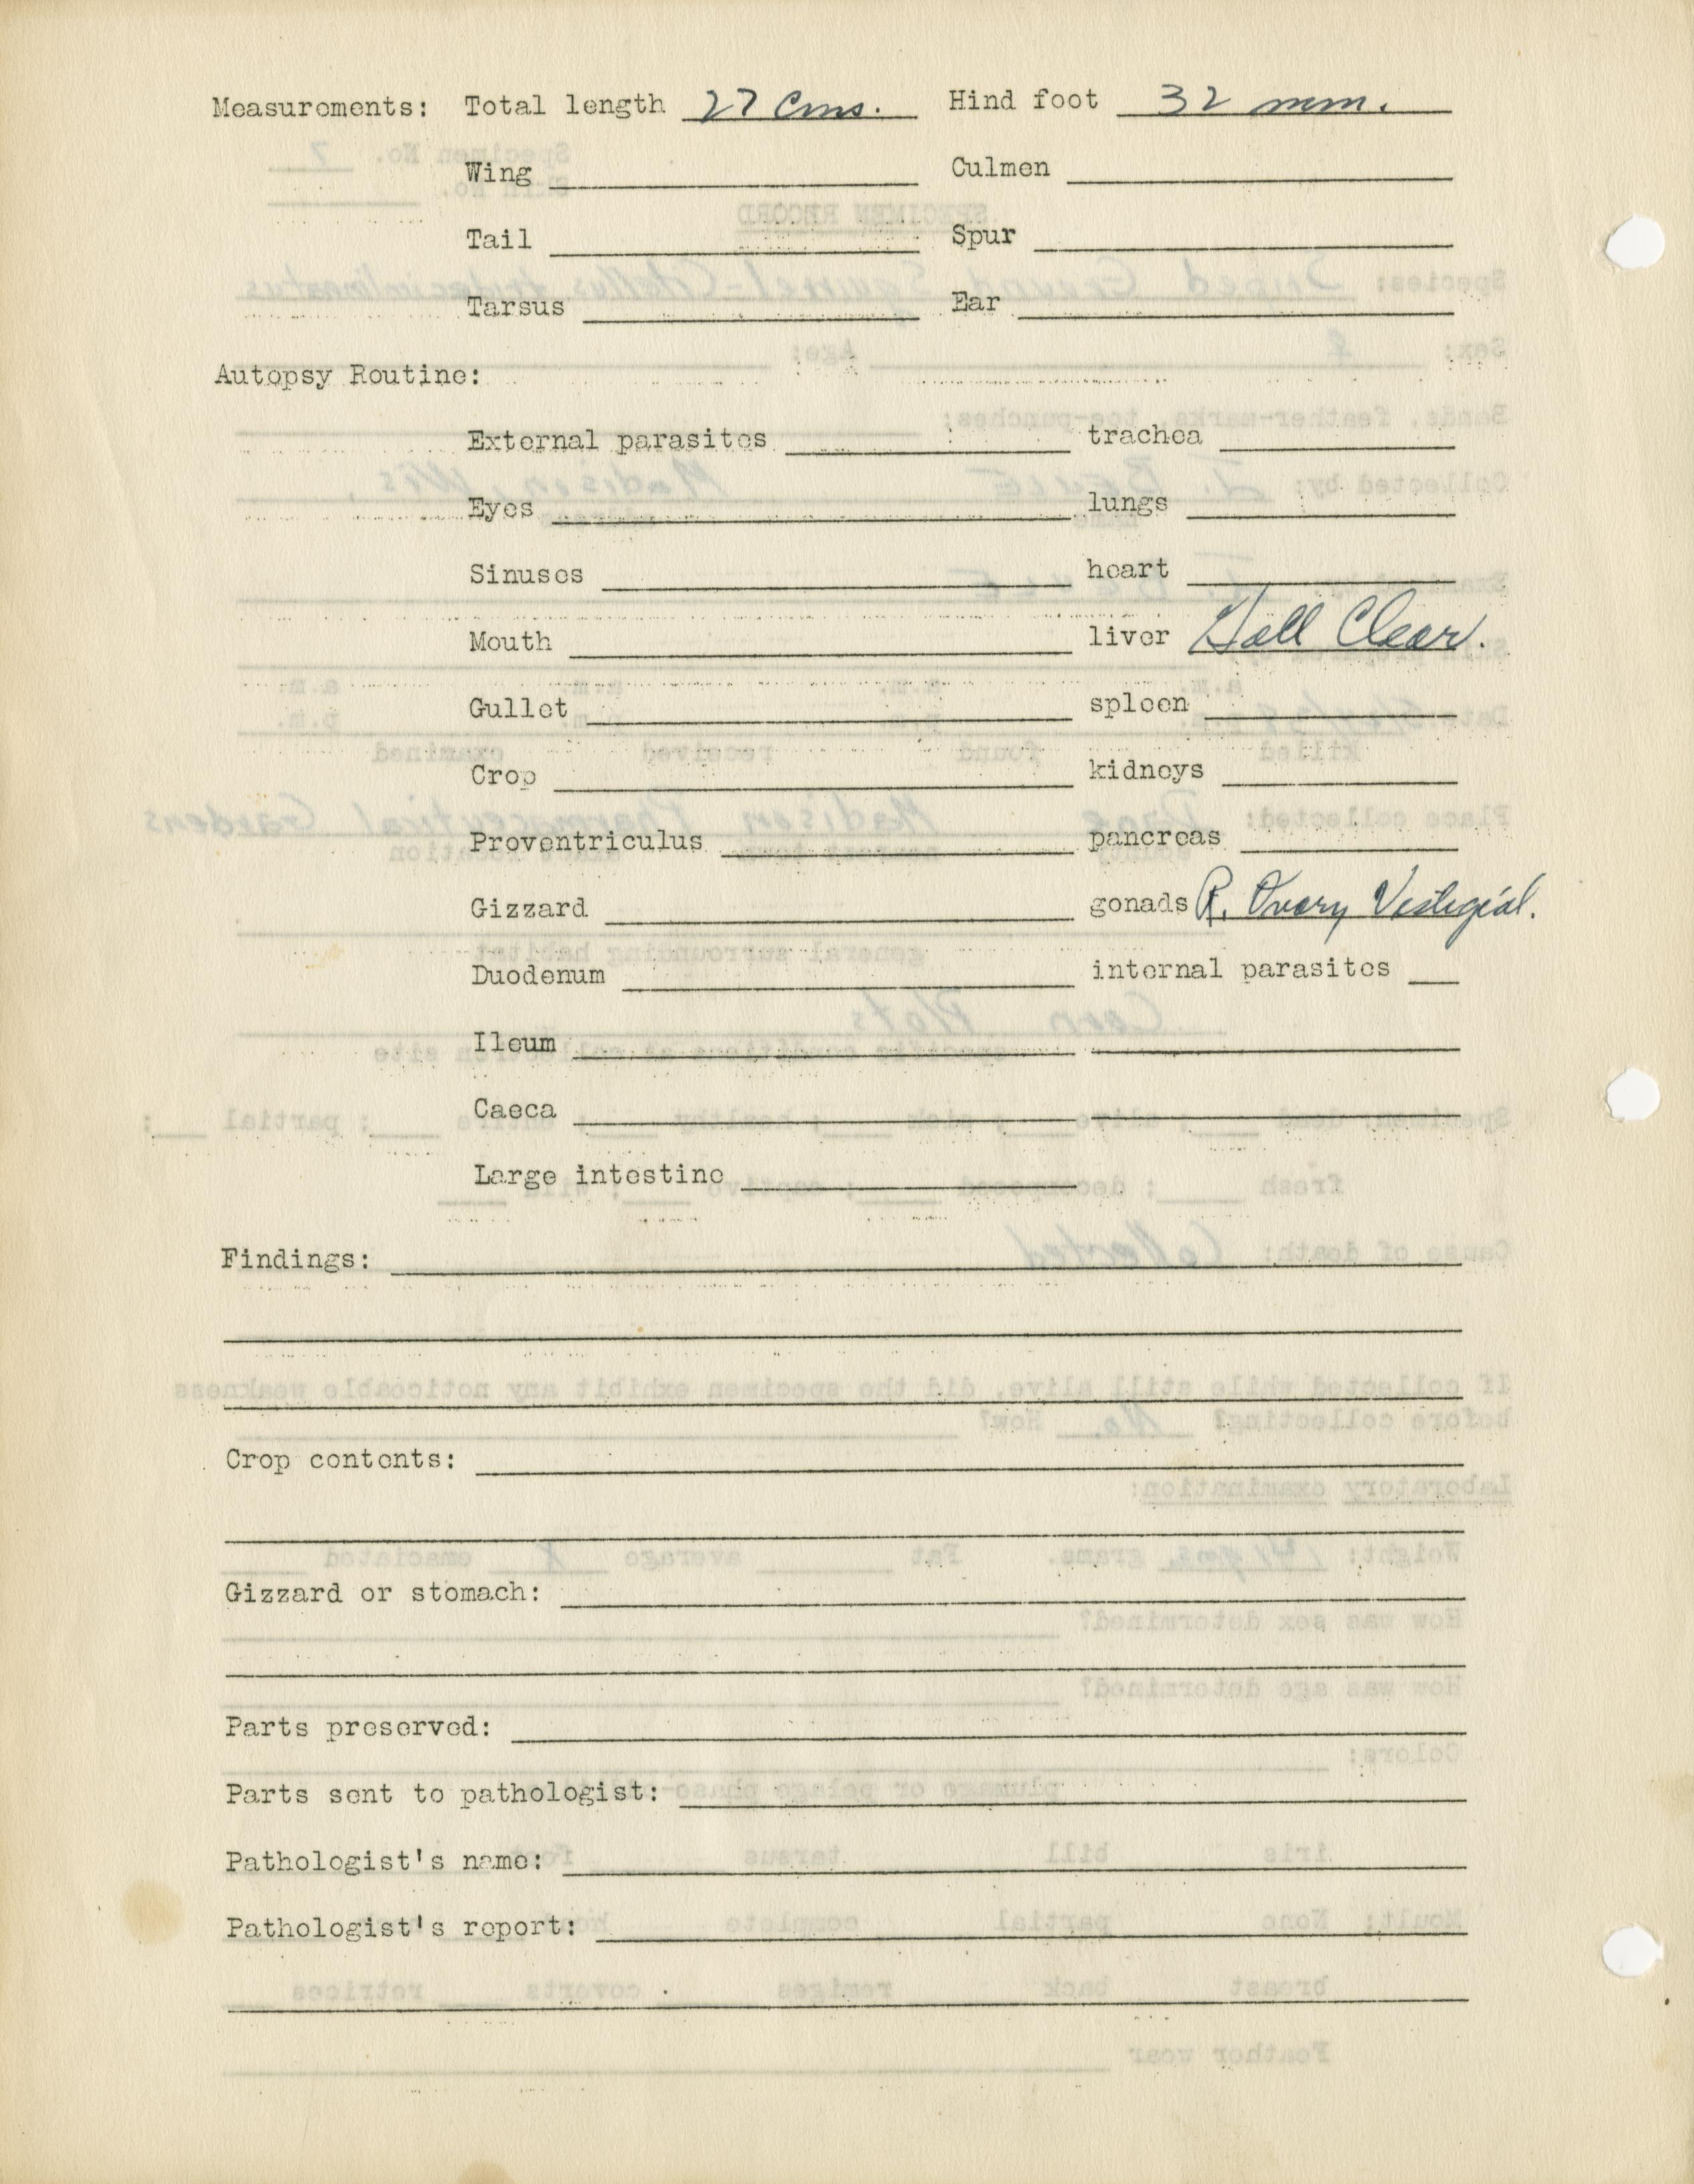 Measurements: Total length 27 cms. Hind foot 32 mm.
Wing Culmen
Tail Spur
Tarsus Ear
Autopsy Routine:
External parasites trachea
Eyes lungs
Sinuses heart
Mouth liver Gall Clear.
Gullet spleen
Crop kidneys
Proventriculus pancreas
Gizzard gonads R. Ovary Vestigial.
Duodenum internal parasites
Ileum
Caeca
Large intestine
Findings:
Crop contents:
Gizzard or stomach:
Parts preserved:
Parts sent to pathologist:
Pathologist's name:
Pathologist's report: